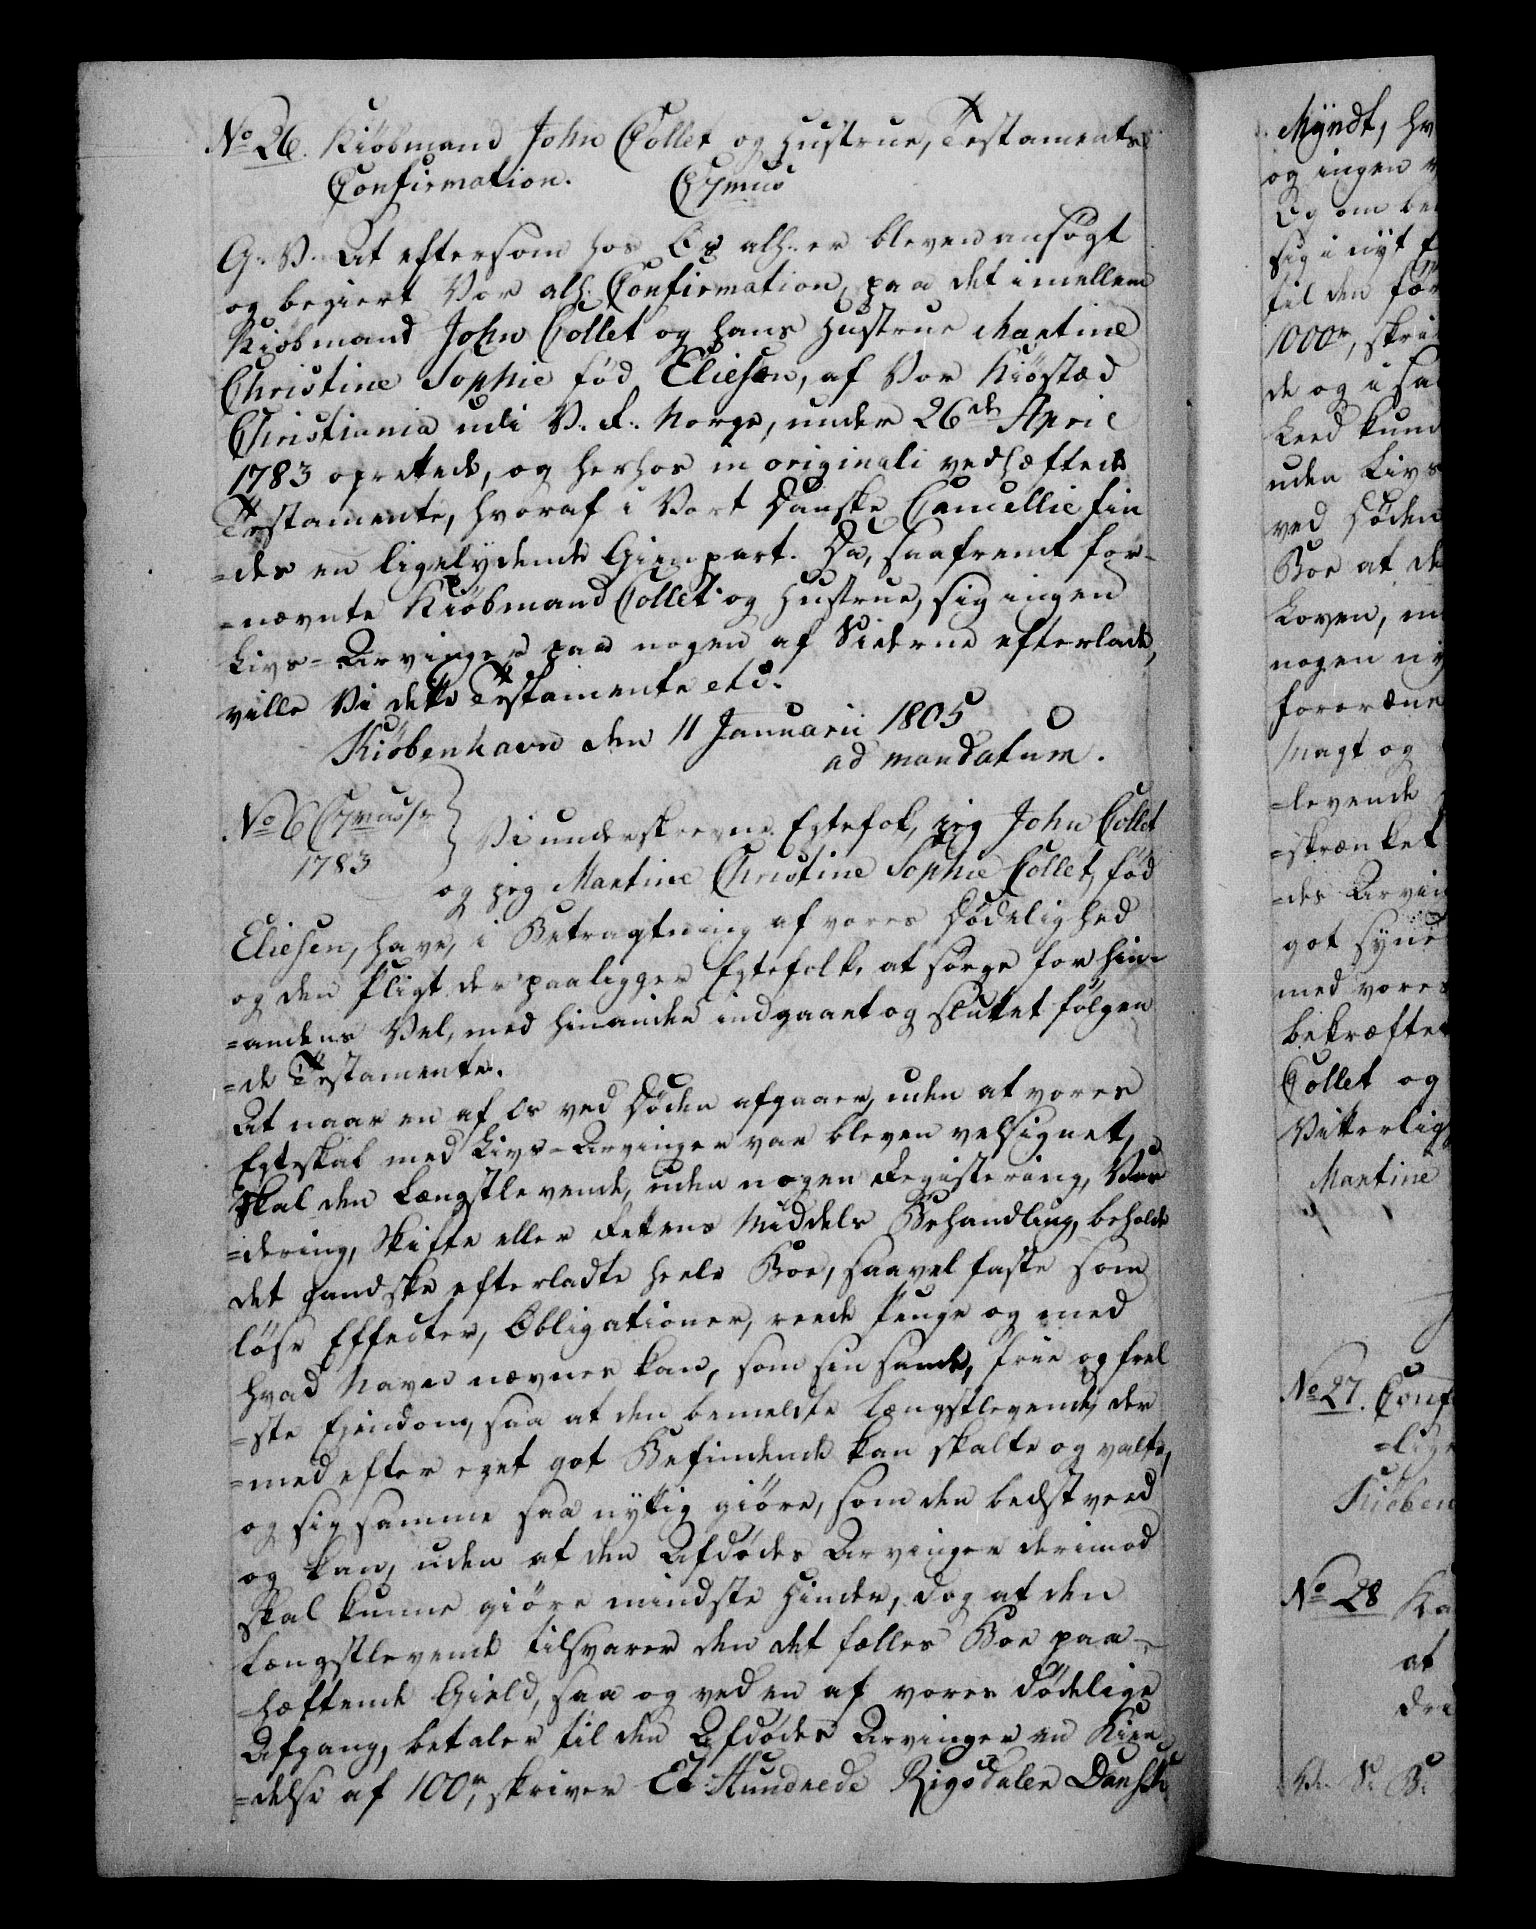 No 26. Kiöbmand John Collet og Hustrue, Testaments
Confirmation.
G. V. At eftersom hos Os alh: er bleven ansøgt
og begiert Vor alh: Confirmation, paa det imellem
Kiöbmand John Collet og hans Hustrue Martine
Christine Sophie fød Eliesen, af Vor Kiöstæd
Christiania udi V. R. Norge, under 26de April
1783 oprettede, og herhos in originali vedhæftede
Testamente, hvoraf i Vort Danske Cancellie fin
=des en ligelydende Gienpart. Da, saafremt for-
=nævnte Kiöbmand Collet og Hustrue, sig ingen
Livs-Arvinger paa nogen af Siderne efterlade,
ville Vi dette Testamente etc.
Kiöbenhavn den 11 Januarii 1805
ad mandatum.
No 6
1783
Vi underskrevne Egtefolk, jeg John Collet
og jeg Martine Christine Sophie Collet, fød
Eliesen, have, i Betragtning af vores Dødelighed
og den Pligt der paaligger Egtefolk, at sørge for hin-
=andens Vel, med hinanden indgaaet og sluttet følgen
=de Testamente.
At naar en af os ved Døden afgaaer, uden at vores
Egteskab med Livs-Arvinger var bleven velsignet,
skal den Længstlevende, uden nogen Registering, Vur
=dering, Skifte eller Rettens Middels Behandling, beholde
det gandske efterladte heele Boe, saavel faste som
løse Effecter, Obligationer, reede Penge og med
hvad Navn nævnes kan, som sin sande, frie og frel
=ste Eiendom, saa at den bemeldte Længstlevende der
=med efter eget got Befindende kan skalte og valte,
og sig samme saa nyttig giöre, som den bedst veed
og kan, uden at den Afdødes Arvinger derimod
skal kunne giöre mindste Hinder, dog at den
Længstlevende tilsvarer den det fælles Boe paa-
hæftende Gield, saa og ved en af vores dødelige
Afgang, betaler til den Afdødes Arvinger en Kien
=delse af 100r, skriver Et Hundrede Rigsdaler Danske
Myndt, hv
og ingen
Og om
sig i nyt
til den
1000r, skri
de og i
Leed kun
uden Livs
ved Døden
Boe at de
Loven,
nogen
foror
Magt og
=levende
=skrænket
=des Arvin
got
med vores
bekræftet
Collet og
Vitterlig
Martine
No 27. Conf
Kiöben
No 28 Ka
at